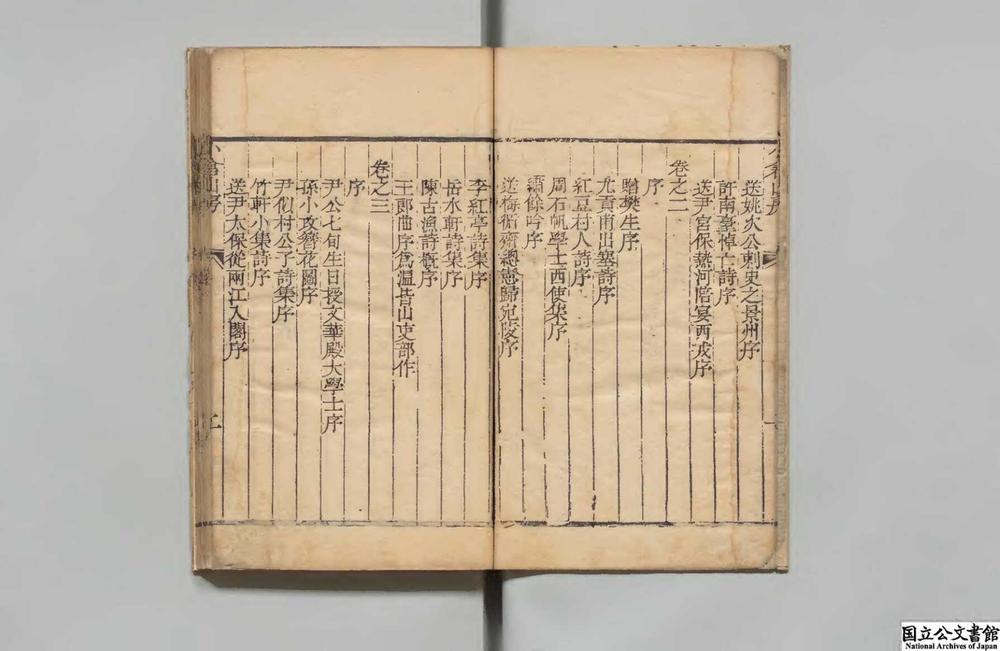 送姚次公刺史之景州序
許南臺悼亡詩序
送尹宮保熱河陪宴西戎序
卷之二
序
贈樊生序
尤貢甫出塞詩序
紅豆村人詩序
周石帆學士西使集序
繡餘吟序
送梅循齋總憲歸宛陵序
李紅亭詩集序
岳水軒詩集序
陳古漁詩槪序
王郎曲序爲温皆山吏部作
卷之三
序
尹公七旬生日授文華殿大學士序
孫小攻簪花圖序
尹似村公子詩集序
竹軒小集詩序
送尹太保從兩江入閣序
小倉山房
二
国立公文書館
National Archives of Japan